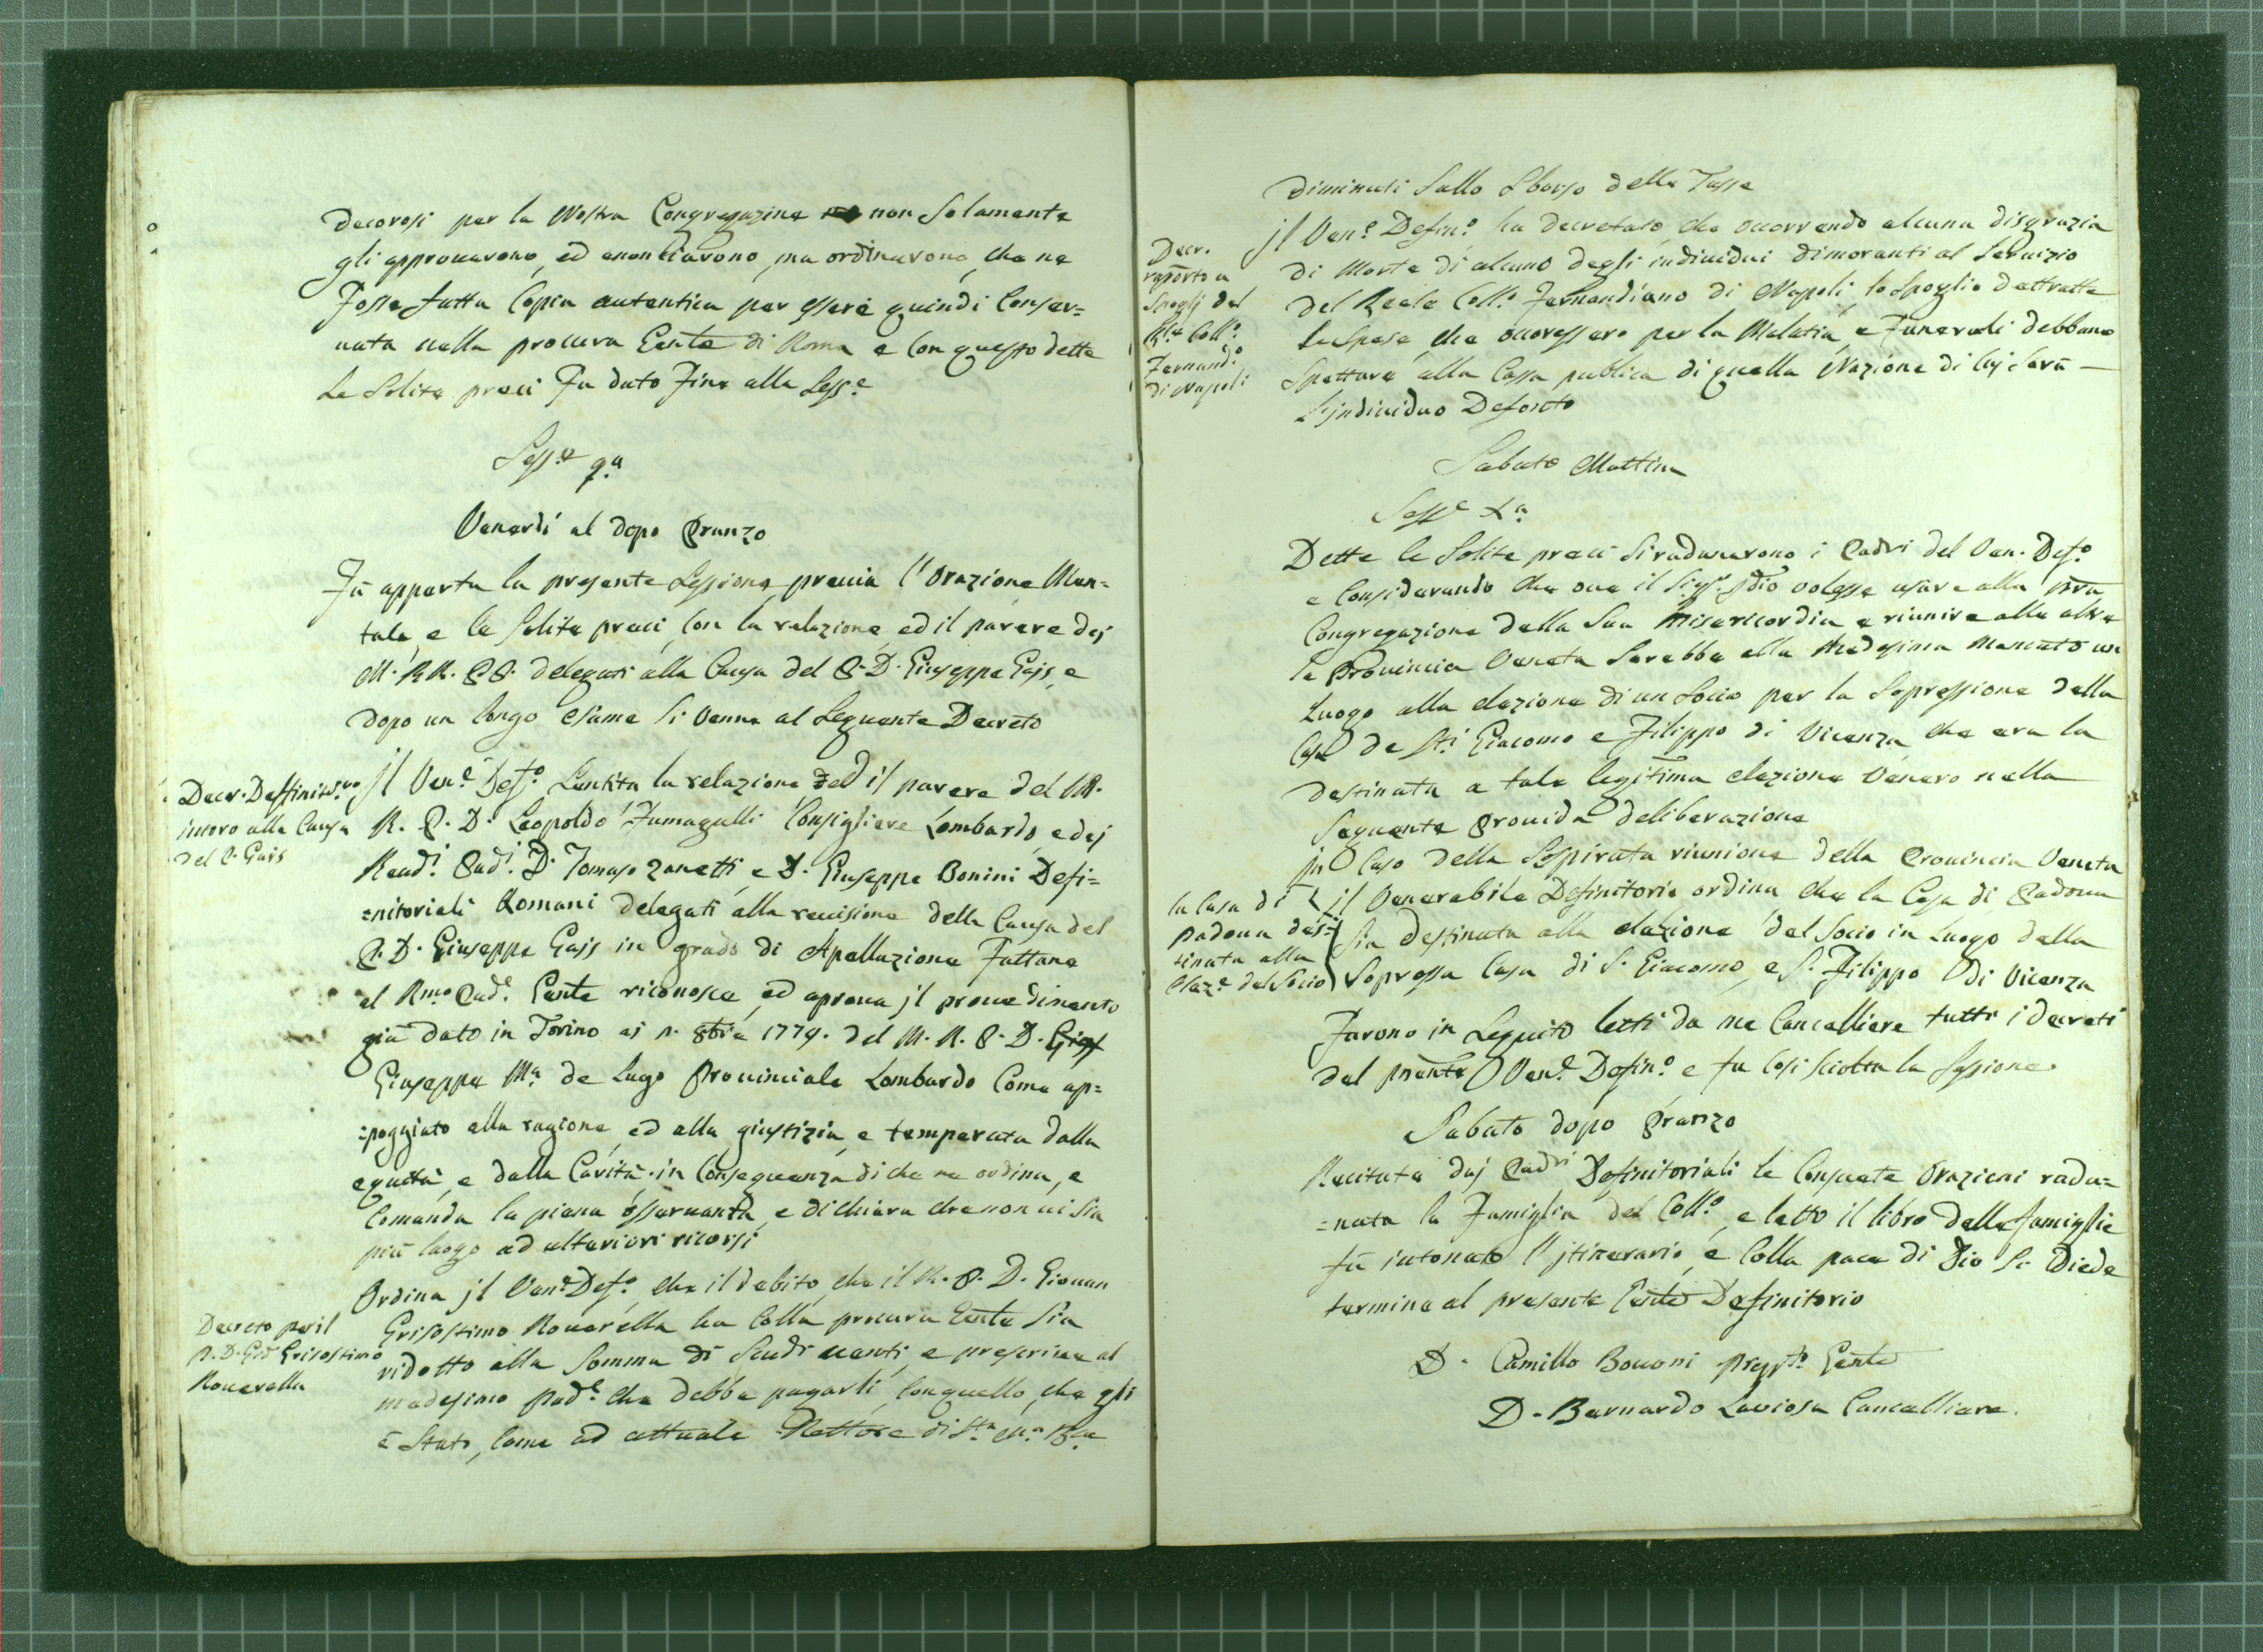 decorosi per la Nostra Congregazine non Solamente
gli approuarono, ed encomiarono, ma ordinarono, che ne
Fosse fatta Copia autentica per essere quindi Conser=
uata nella procura Gente di Roma e Con questo dette
Le Solite preci Fu dato Fine alla Sess.e
Sess.e 9.a
Venerdí al dopo Pranzo
Fù apperta la presente Sessione, preuia l'Orazione Men=
tale, e le Solite preci, Con la relazione, ed il parere dej
M. RR. PP. delegati alla Causa del P. D. Giuseppe Gajs, e
dopo un longo esame Si Venne al Seguente Decreto
Decr. Deffinit.uo
intoro alla Causa
del P. Gais
jl Ven.e Def.o Sentita la relazione, ed il parere del M.
R. P. D. Leopoldo Fumagalli Consigliere Lombardo, e dej
Reud.i Pad.i D. Tomaso Zanetti, e D. Giuseppe Bonini Defi=
=nitoriali Romani delegati alla reuisione della Causa del
P. D. Giuseppe Gajs in grado di Apellazione Fattane
al R.mo Pad.e Gente riconosce, ed aproua jl prouedimento
già dato in Torino ai 1. 8bre 1779. del M. R. P. D.
Giuseppe M.a de Lugo Prouinciale Lombardo Come ap=
=poggiato alla ragione, ed alla giustizia, e temperata dalla
equità, e dalla Carità. in Conseguenza di che ne ordina, e
Comanda la piena osseruanza, e dichiara che non ui Sia
più luogo ad ulteriori ricorsi
Decreto per il
P. D. Gio Grisostimo
Rouerella
Ordina jl Ven.e Def.o che il debito, che il R. P. D. Giouan
Grisostimo Rouerella ha Colla procura Gente Sia
ridotto alla Somma di Scudi uenti, e prescriue al
medesimo Pad.e che debba pagarli, Con quello, che gli
è Stato, Come ad attuale Rettore di S.ta M.a
diminuti Sullo Sborso delle Tasse
Decr.
raporto a
Spoglj del
R.le Coll.o
Fernand.o
di Napoli
jl Ven.e Defin.o ha decretato, che ocorrendo alcuna disgrazia
di Morte di alcuno degli indiuidui dimoranti al Seruizio
del Reale Coll.o Fernandiano di Napoli, lo Spoglio dettratte
le Spese, che ocoressero per la Malatia, e Funerali debbano
Spettare alla Cassa publica di quella Nazione di Cuj Sarà
L'jndiuiduo Defonto
Sabato Mattina
Sess.e X.a
Dette le Solite preci Si radunarono i Padri del Ven. Def.o
e Considerando che oue il Sig.r jdio uolesse usare alla nrã
Congregazione della Sua Misericordia e riunire alle altre
la Prouincia Veneta Sarebbe alla Medesima Mancato un
Luogo alla elezione di un Socio per la Sopressione della
Casa de Sti Giacomo e Filippo di Vicenza che era la
destinata a tale legittima elezione Venero nella
Seguente Prouida deliberazione
La Casa di
Padoua des=
tinata alla
elez.e del Socio
jn Caso della Sospirata riunione della Prouincia Veneta
il Venerabile Definitorio ordina che la Casa di Padoua
Sia destinata alla elezione del Socio in Luogo della
Sopressa Casa di S. Giacomo, e S. Filippo di Vicenza
Furono in Seguito letti da me Cancelliere tutti i decreti
del prẽnte Ven.e Defin.o e fu Cosi Sciolta la Sessione
Sabato dopo Pranzo
Recitate daj Padri Definitoriali le Consuete Orazioni radu=
=nata la Famiglia del Coll.o, e letto il libro delle famiglie
fù intonato l'jtinerario, e Colla pace di Dio Si Diede
termine al presente Gente Definitorio
D. Camillo Bouoni Prep.to Gente
D. Bernardo Lauiosa Cancelliere.